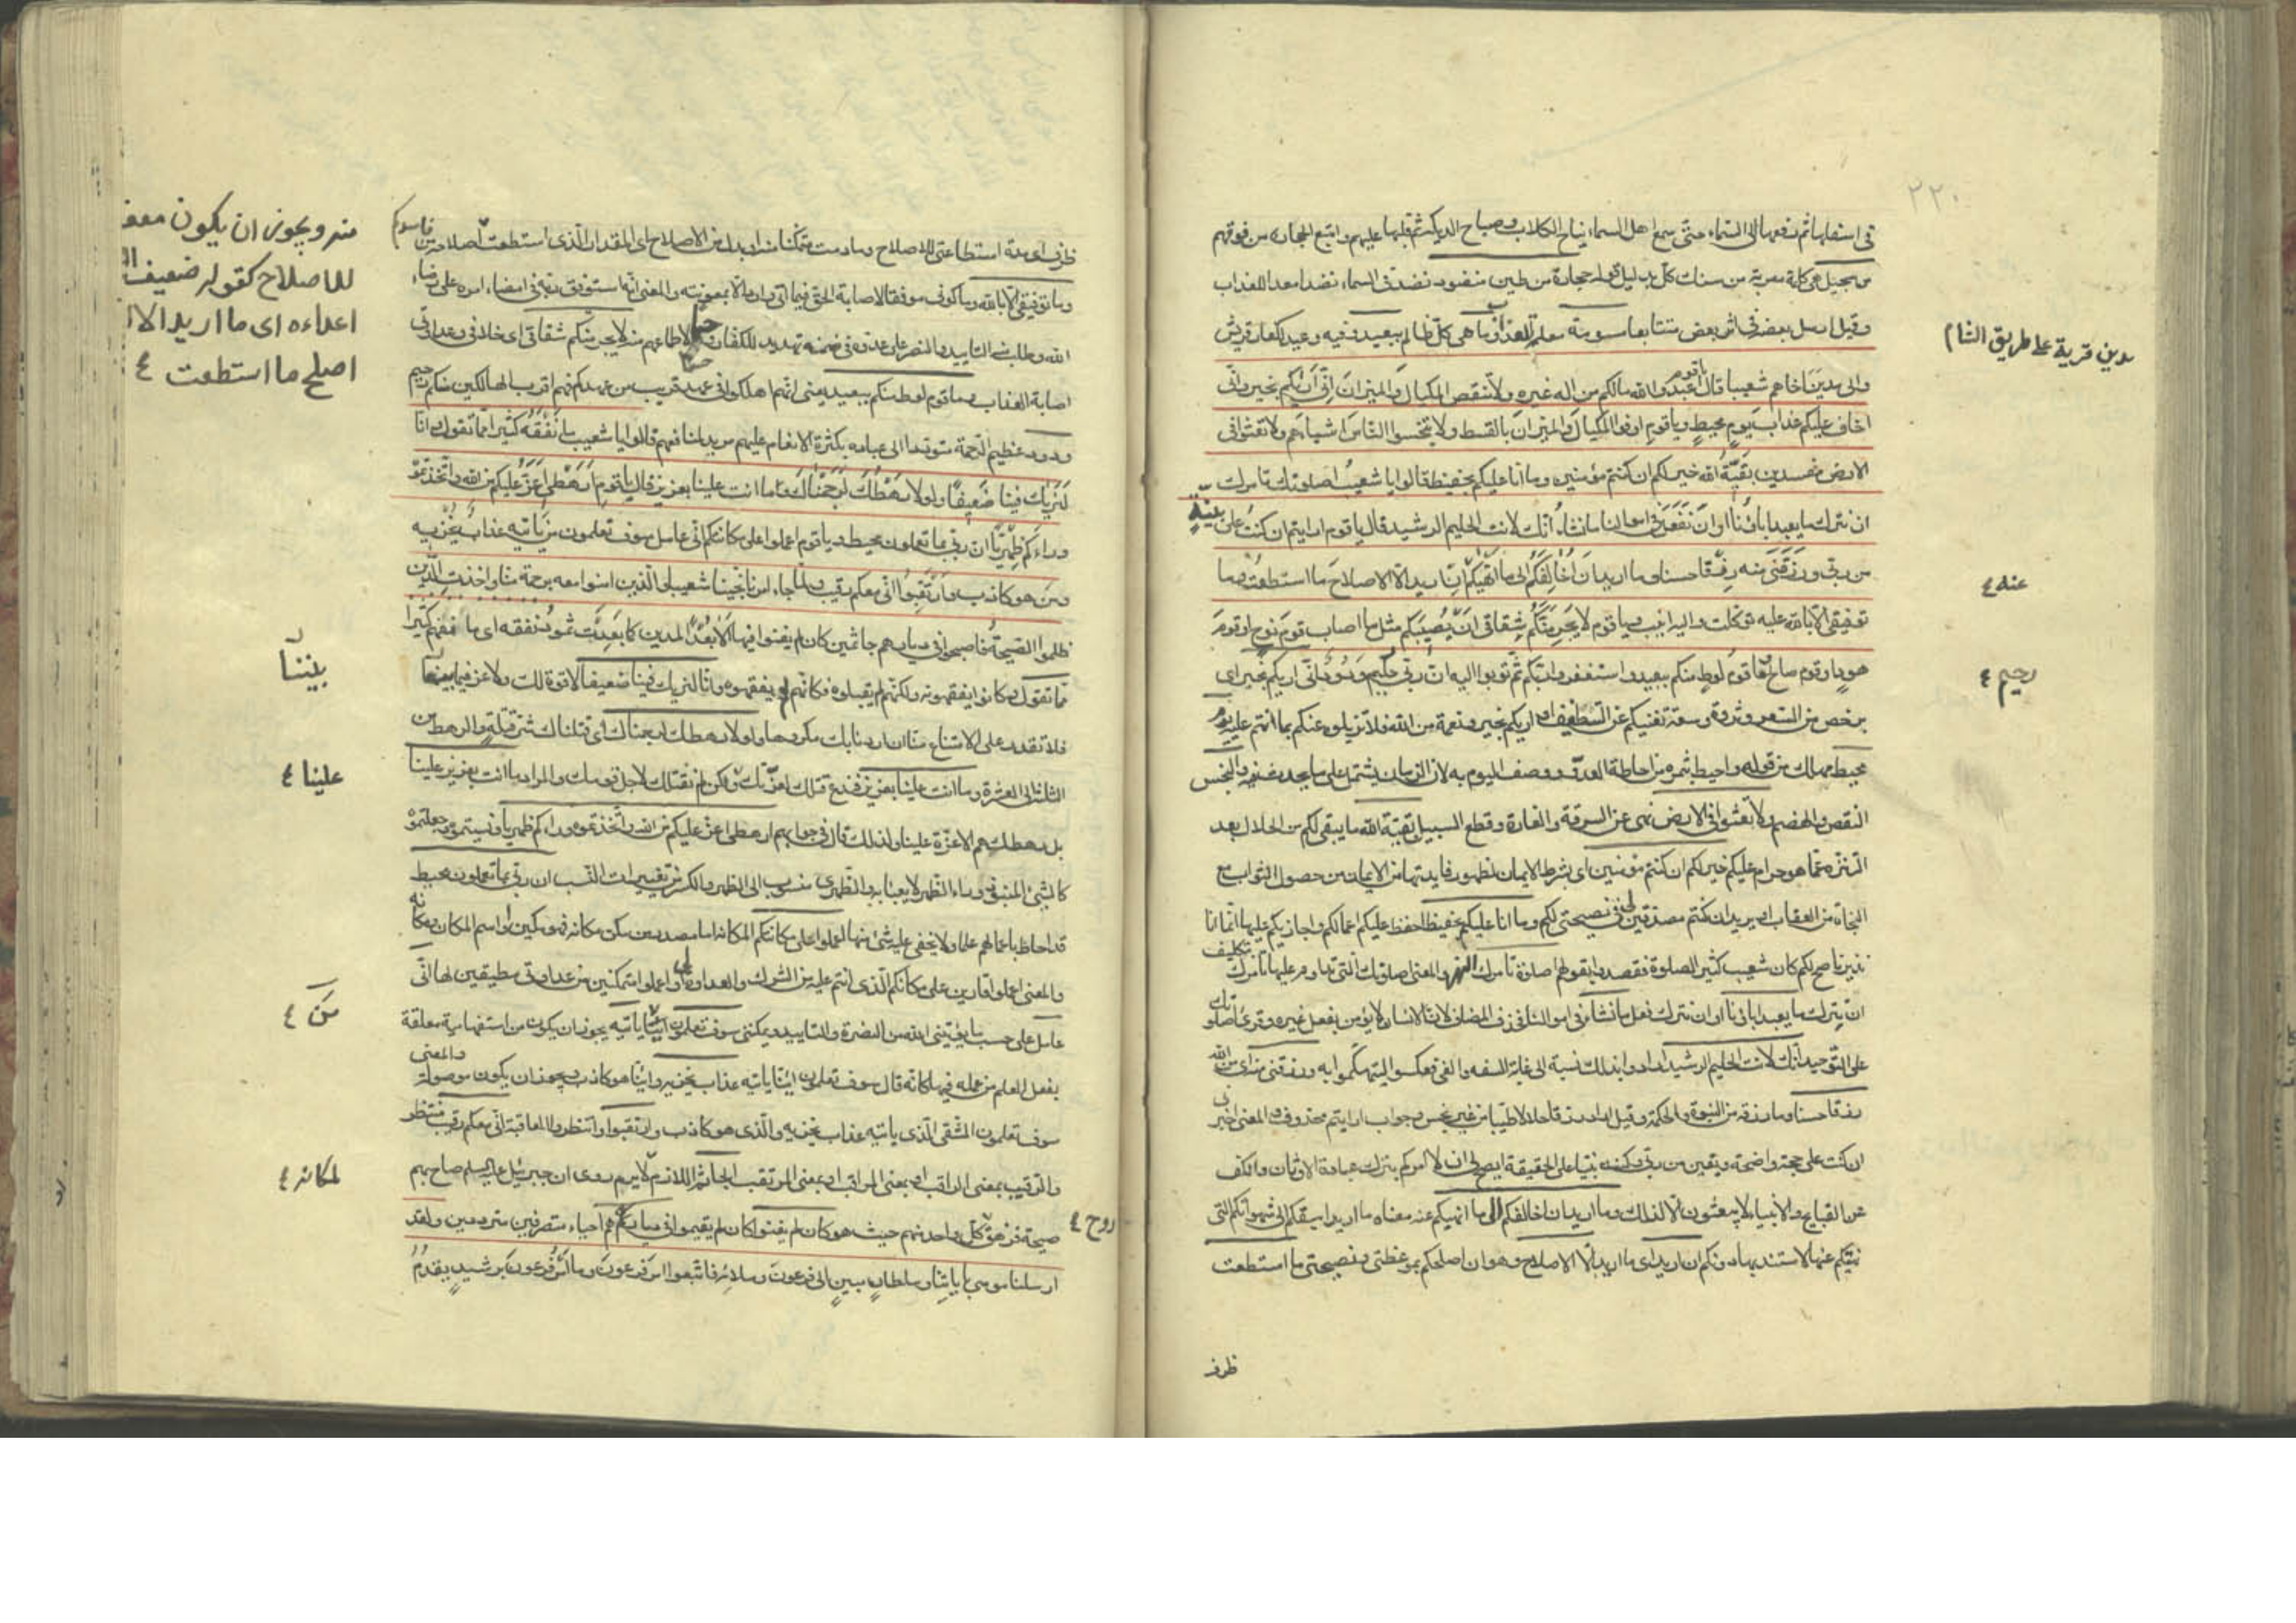 ٢٢٠
في اسفلها ثم رفعها الى السماء حتى سمع اهل السماء نباح الكلاب وصياح الديكة ثم قلبها عليهم واتبع الحجارة من فوقهم
من سجيل هي كلمة معربة من سنك كل بدليل قوله حجارة من طين منضود نضد في السماء نضدا معدا للعذاب
وقيل ارسل بعضه في اثر بعض متتابعا مسومة معلمة للعذاب وما هي كل ظالم ببعيد وفيه وعيد لكفار قريش
مدين قرية على طريق الشام
والى مدين اخاهم شعيبا قال يا قوم اعبدوا الله مالكم من اله غيره ولا تنقصوا المكيال والميزان اني اراكم بخير واني
اخاف عليكم عذاب يوم محيط ويا قوم اوفوا المكيال والميزان بالقسط ولا تبخسوا الناس اشياءهم ولا تعثوا في
الارض مفسدين بقية الله خير لكم ان كنتم مؤمنين وما انا عليكم بحفيظ قالوا يا شعيب اصلوتك تامرك
ان نترك ما يعبد اباؤنا او ان نفعل في اموالنا ما نشاء انك لانت الحليم الرشيد قال يا قوم ارايتم ان كنت على بينة
من ربي ورزقني منه رزقا حسنا وما اريد ان اخالفكم الى ما انهيكم ان اريد الا الاصلاح ما استطعت وما
عنه ٤
توفيقي الا بالله عليه توكلت واليه انيب ويا قوم لا يجرمنكم شقاقي ان يصيبكم مثل ما اصاب قوم نوح او قوم
هود او قوم صالح وما قوم لوط منكم ببعيد واستغفروا ربكم ثم توبوا اليه ان ربي رحيم ودود اني اريكم بخير اي
رحيم ٤
برخص من السعر وثروة وسعة تغنيكم عن التطفيف او اريكم بخير ونعمة من الله فلا تزيلوه عنكم بما انتم عليه يوم
محيط مهلك من قوله واحيط بثمره من احاطة العدو ووصف اليوم به لان الزمان يشتمل على ما يحدث فيه والبخس
النقص والهضم ولا تعثوا في الارض نهي عن السرقة والغارة وقطع السبيل بقية الله ما يبقى لكم من الحلال بعد
التنزه عما هو حرام عليكم خير لكم ان كنتم مؤمنين اي بشرط الايمان لظهور فايدتها من الايمان من حصول الثواب مع
النجاة من العقاب او يريد ان كنتم مصدقين لي في نصيحتي لكم وما انا عليكم بحفيظ احفظ عليكم اعمالكم واجازيكم عليها انما انا
نذير ناصح لكم كان شعيب كثير الصلوة فقصدوا بقولهم اصلوتك تامرك الهزء والمعنى اصلوتك التي تداوم عليها تامرك تكليف
ان نترك ما يعبد اباؤنا او ان نترك فعل ما نشاء في اموالنا فحذف المضاف لان الانسان لا يؤمر بفعل غيره وقرئ اصلوتك
على التوحيد انك لانت الحليم الرشيد ارادوا بذلك نسبته الى غاية السفه والغي فعكسوا ليتهكموا به ورزقني منه اي من الله
رزقا حسنا وما رزقه من النبوة والحكمة وقيل اراد رزقا حلالا طيبا من غير بخس وجواب ارايتم محذوف والمعنى اخبروني
ان كنت على حجة واضحة ويقين من ربي وكنت نبيا على الحقيقة ايصح لي ان لا امركم بترك عبادة الاوثان والكف
عن القبايح والانبياء لا يبعثون الا لذلك وما اريد ان اخالفكم الى ما انهيكم عنه معناه ما اريد ان اسبقكم الى شهواتكم التي
نهيتكم عنها لاستبد بها دونكم ان اريد اي ما اريد الا الاصلاح وهو ان اصلحكم بموعظتي ونصيحتي ما استطعت
ظرف
ظرف اي مدة استطاعتي للاصلاح وما دمت متمكنا منه او بدل من الاصلاح اي المقدار الذي استطعت اصلاحه من فاسدكم
منه ويجوز ان يكون مفعو
للاصلاح كقوله ضعيف ال
اعداءه اي ما اريد الا ا
اصلح ما استطعت ٤
وما توفيقي الا بالله وما كوني موفقا لاصابة الحق فيما اتي واذر الا بمعونته والمعنى انه استوفق ربه في امضاء امره على رضاء
الله وطلب منه التاييد والنصر على عدوه وفي ضمنه تهديد للكفار وحسم لاطماعهم منه لا يجرمنكم شقاقي اي خلافي وعداوتي
اصابة العذاب وما قوم لوط منكم ببعيد يعني انهم اهلكوا في عهد قريب من عهدكم فهم اقرب الهالكين منكم رحيم
ودود عظيم الرحمة متودد الى عباده بكثرة الانعام عليهم مريد لمنافعهم قالوا يا شعيب ما نفقه كثيرا مما تقول وانا
لنريك فينا ضعيفا ولولا رهطك لرجمناك وما انت علينا بعزيز قال يا قوم ارهطي اعز عليكم من الله واتخذتموه
وراءكم ظهريا ان ربي بما تعملون محيط ويا قوم اعملوا على مكانتكم اني عامل سوف تعلمون من ياتيه عذاب يخزيه
ومن هو كاذب وارتقبوا اني معكم رقيب ولما جاء امرنا نجينا شعيبا والذين امنوا معه برحمة منا واخذت الذين
ظلموا الصيحة فاصبحوا في ديارهم جاثمين كان لم يغنوا فيها الا بعدا لمدين كما بعدت ثمود نفقه اي ما نفهم كثيرا
مما تقول وكانوا يفقهونه ولكنهم لم يقبلوه فكانهم لم يفقهوه وانا لنريك فينا ضعيفا لا قوة لك ولا عز فيما بيننا
بيننا
فلا تقدر على الامتناع منا ان اردنا بك مكروها ولولا رهطك لرجمناك اي قتلناك شر قتلة والرهط من
الثلثة الى العشرة وما انت علينا بعزيز فندع قتلك لعزتك ولكن لم نقتلك لاجل قومك والمراد ما انت بعزيز علينا
علينا ٤
بل رهطك هم الاعزة علينا ولذلك قال في جوابهم ارهطي اعز عليكم من الله واتخذتموه وراءكم ظهريا ونسيتموه وجعلتموه
كالشيء المنبوذ وراء الظهر لا يعبا به والظهري منسوب الى الظهر والكسر من تغييرات النسب ان ربي بما تعملون محيط
قد احاط باعمالكم علما ولا يخفى عليه شيء منها اعملوا على مكانتكم المكانة اما مصدر من مكن مكانة فهو مكين او اسم المكان ومكانة
والمعنى اعملوا قارين على مكانكم الذي انتم عليه من الشرك والعداوة لي او اعملوا متمكنين من عداوتي مطيقين لها اني
عامل على حسب ما يؤتيني الله من النصرة والتاييد ويمكنني سوف تعلمون من ياتيه يجوز ان يكون من استفهامية معلقة
من ٤
بفعل العلم من عمله فيها كانه قال سوف تعلمون اينا ياتيه عذاب يخزيه واينا هو كاذب ويجوز ان يكون موصولة والمعنى
سوف تعلمون الشقي الذي ياتيه عذاب يخزيه والذي هو كاذب وارتقبوا وانتظروا العاقبة اني معكم رقيب منتظر
والرقيب بمعنى الراقب او بمعنى المراقب او بمعنى المرتقب الجاثم اللازم لا يريم روي ان جبرئيل عليه السلم صاح بهم
لمكانه ٤
صيحة فزهق كل واحد منهم حيث هو كان لم يغنوا كان لم يقيموا في ديارهم احياء متصرفين مترددين ولقد
روح ٤
ارسلنا موسى باياتنا وسلطان مبين الى فرعون وملائه فاتبعوا امر فرعون وما امر فرعون برشيد يقدم